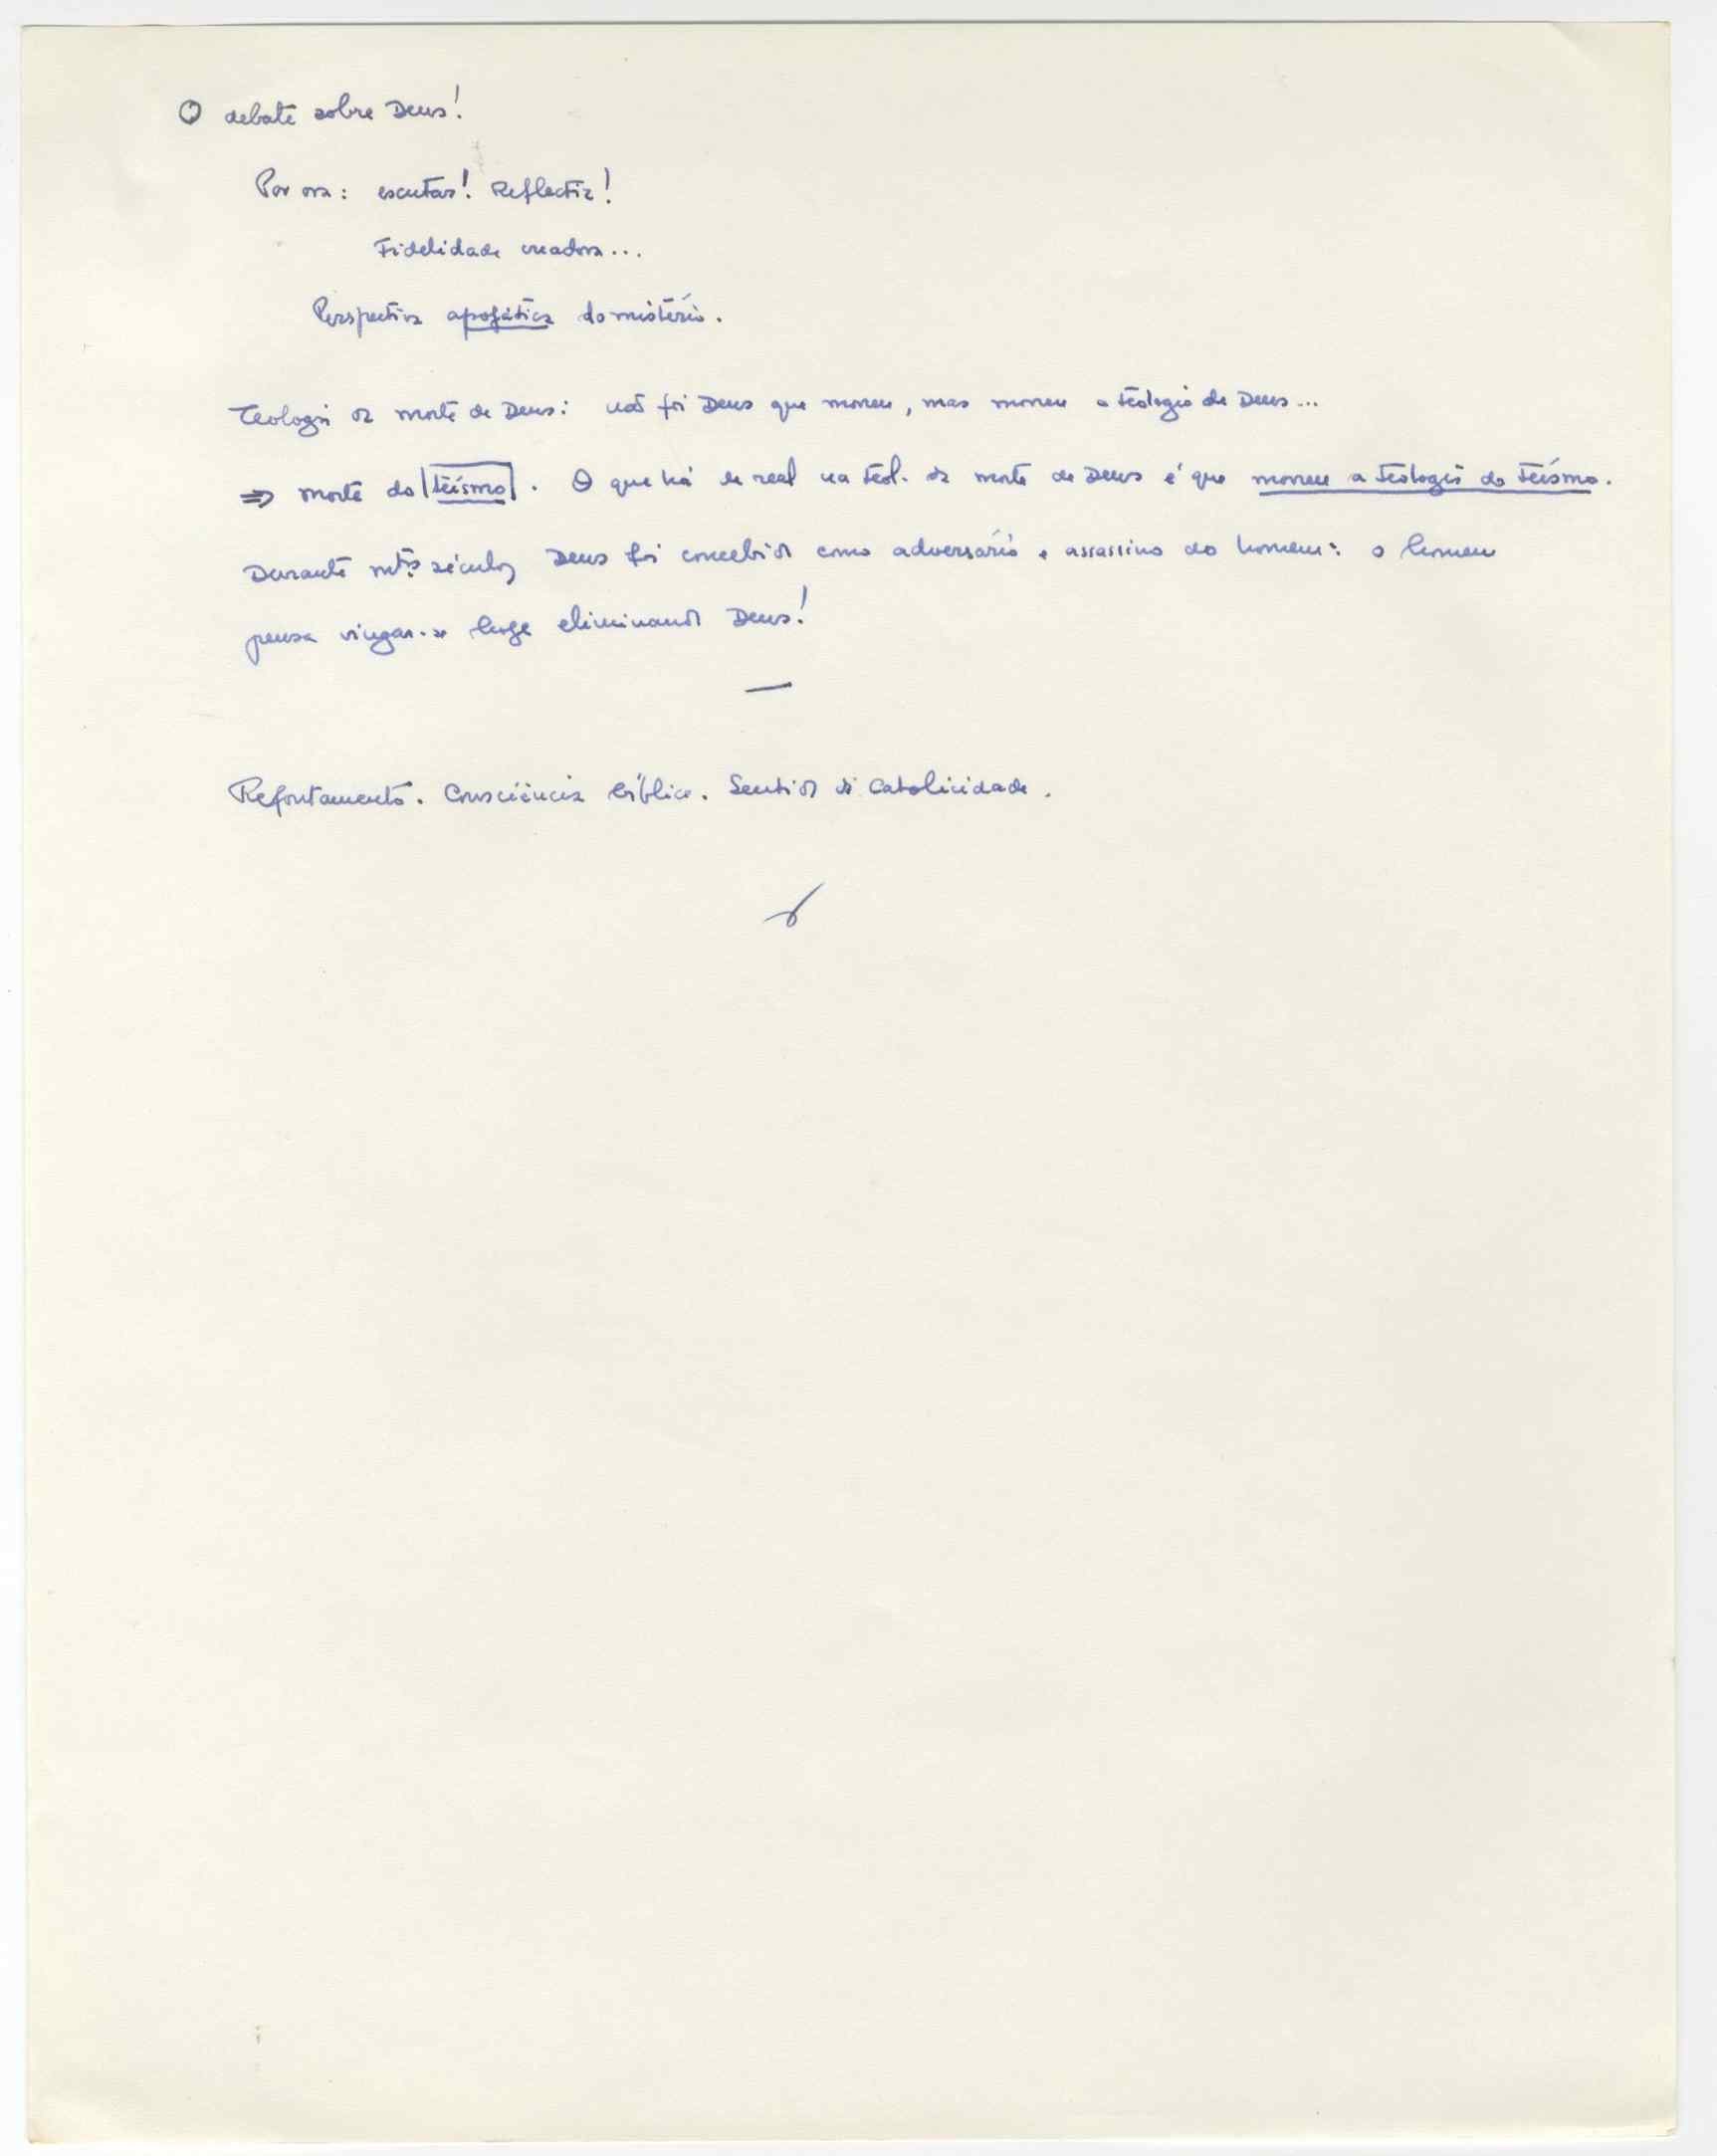 O debate sobre Deus!
Por ora: escutar! Reflectir!
Fidelidade criadora...
Perspectiva apofática do mistério.
Teologia da morte de Deus: não foi Deus que morreu, mas morreu a teologia de Deus...
⇒ morte do |teísmo|. O que há de real na teol. da morte de Deus é que morreu a teologia do teísmo.
Durante mtos séculos Deus foi concebido como adversário e assassino do homem: o homem
pensa vingar-se hoje eliminando Deus!
—
Refontamento. Consciência bíblica. Sentido de catolicidade.